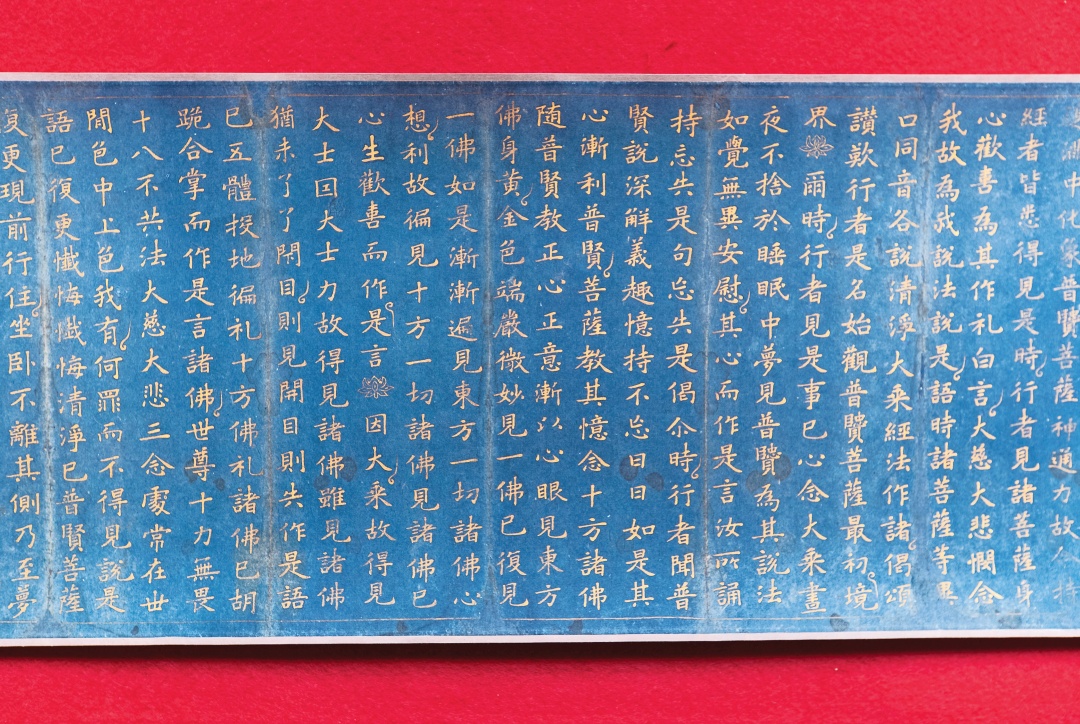 中化象普贒菩薩神通力故令持
經者皆悉得見是時行者見諸菩薩身
心歡喜為其作礼白言大慈大悲憫念
我故為我說法說是語時諸菩薩等異
口同音各說清淨大乘經法作諸偈頌
讃歎行者是名始觀普贒菩薩最初境
界爾時行者見是事已心念大乘晝
夜不捨於睡眠中夢見普贒為其說法
如覺無異安慰其心而作是言汝所誦
持忘失是句忘失是偈尒時行者聞普
賢說深解義趣憶持不忘日日如是其
心漸利普賢菩薩教其憶念十方諸佛
随普賢教正心正意漸以心眼見東方
佛身黃金色端嚴微妙見一佛已復見
一佛如是漸漸遍見東方一切諸佛心
想利故徧見十方一切諸佛見諸佛已
心生歡喜而作是言因大乘故得見
大士因大士力故得見諸佛雖見諸佛
猶未了了閉目則見開目則失作是語
已五體投地徧礼十方佛礼諸佛已胡
跪合掌而作是言諸佛世尊十力無畏
十八不共法大慈大悲三念處常在世
間色中上色我有何罪而不得見說是
語已復更懺悔懺悔清淨已普賢菩薩
復更現前行住坐卧不離其側乃至夢